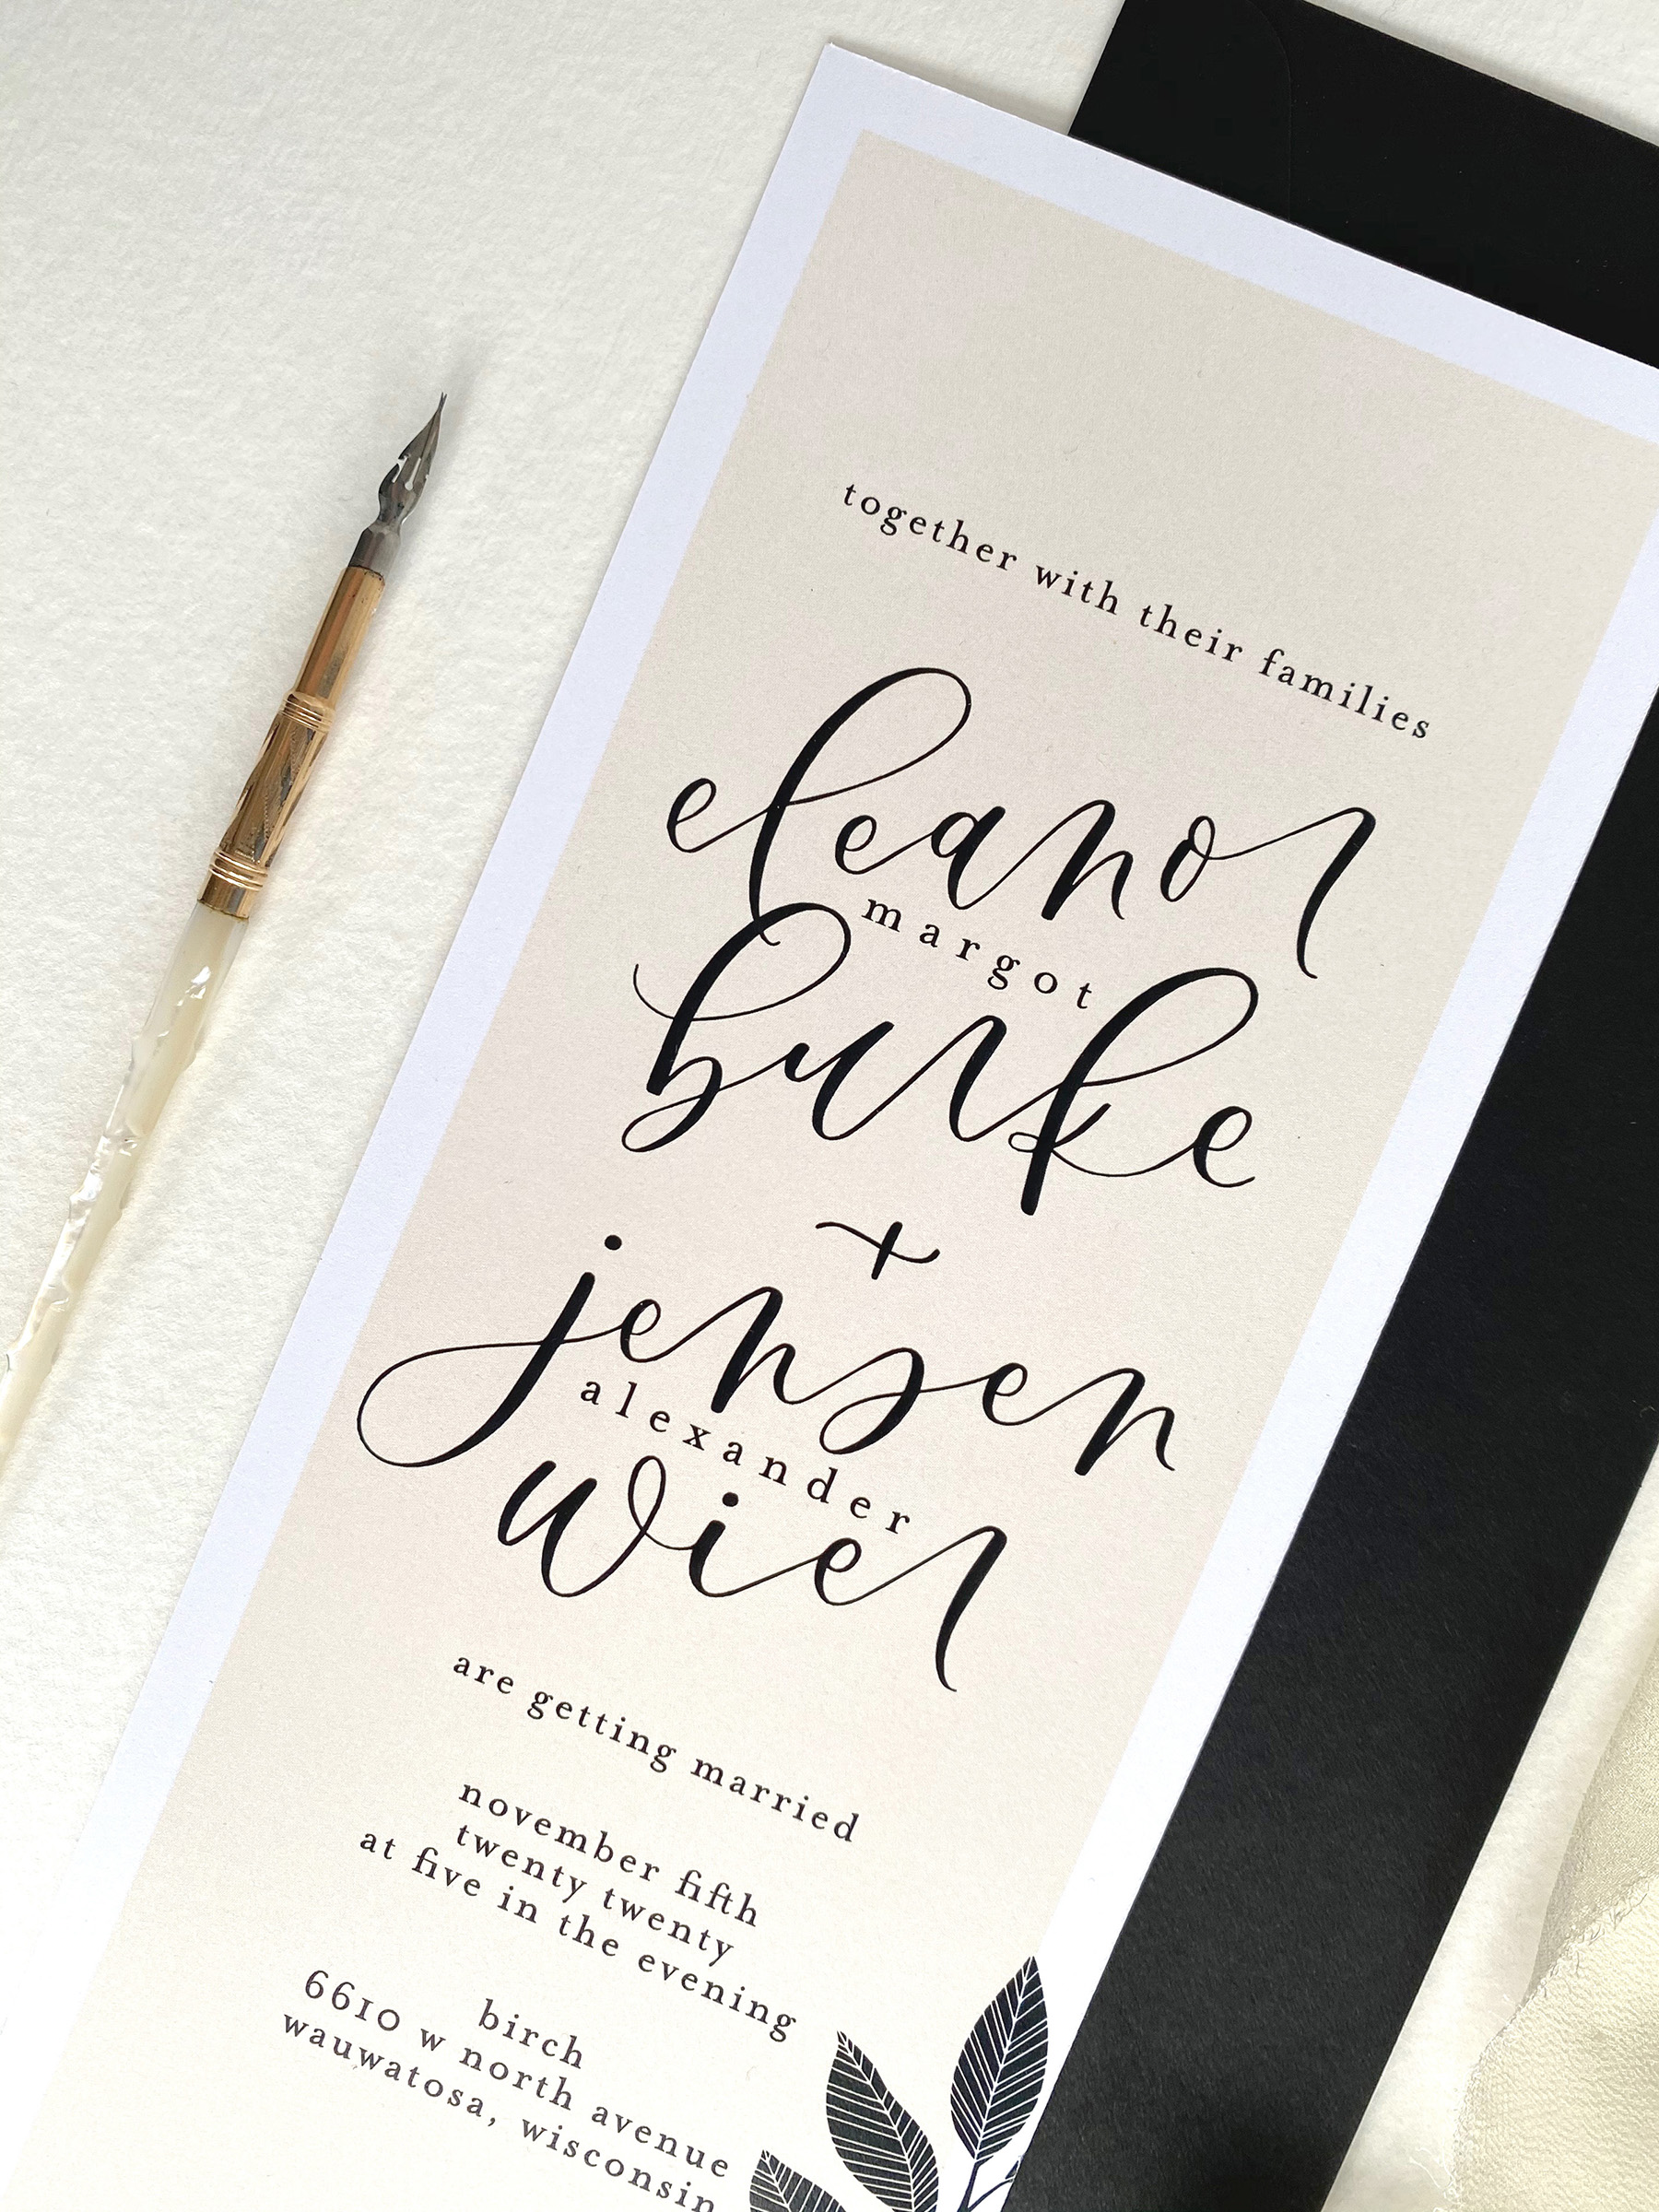 together with their families
eleanor
margot
burke
+
jensen
alexander
wier
are getting married
november fifth
twenty twenty
at five in the evening
birch
6610 w north avenue
wauwatosa, wisconsin